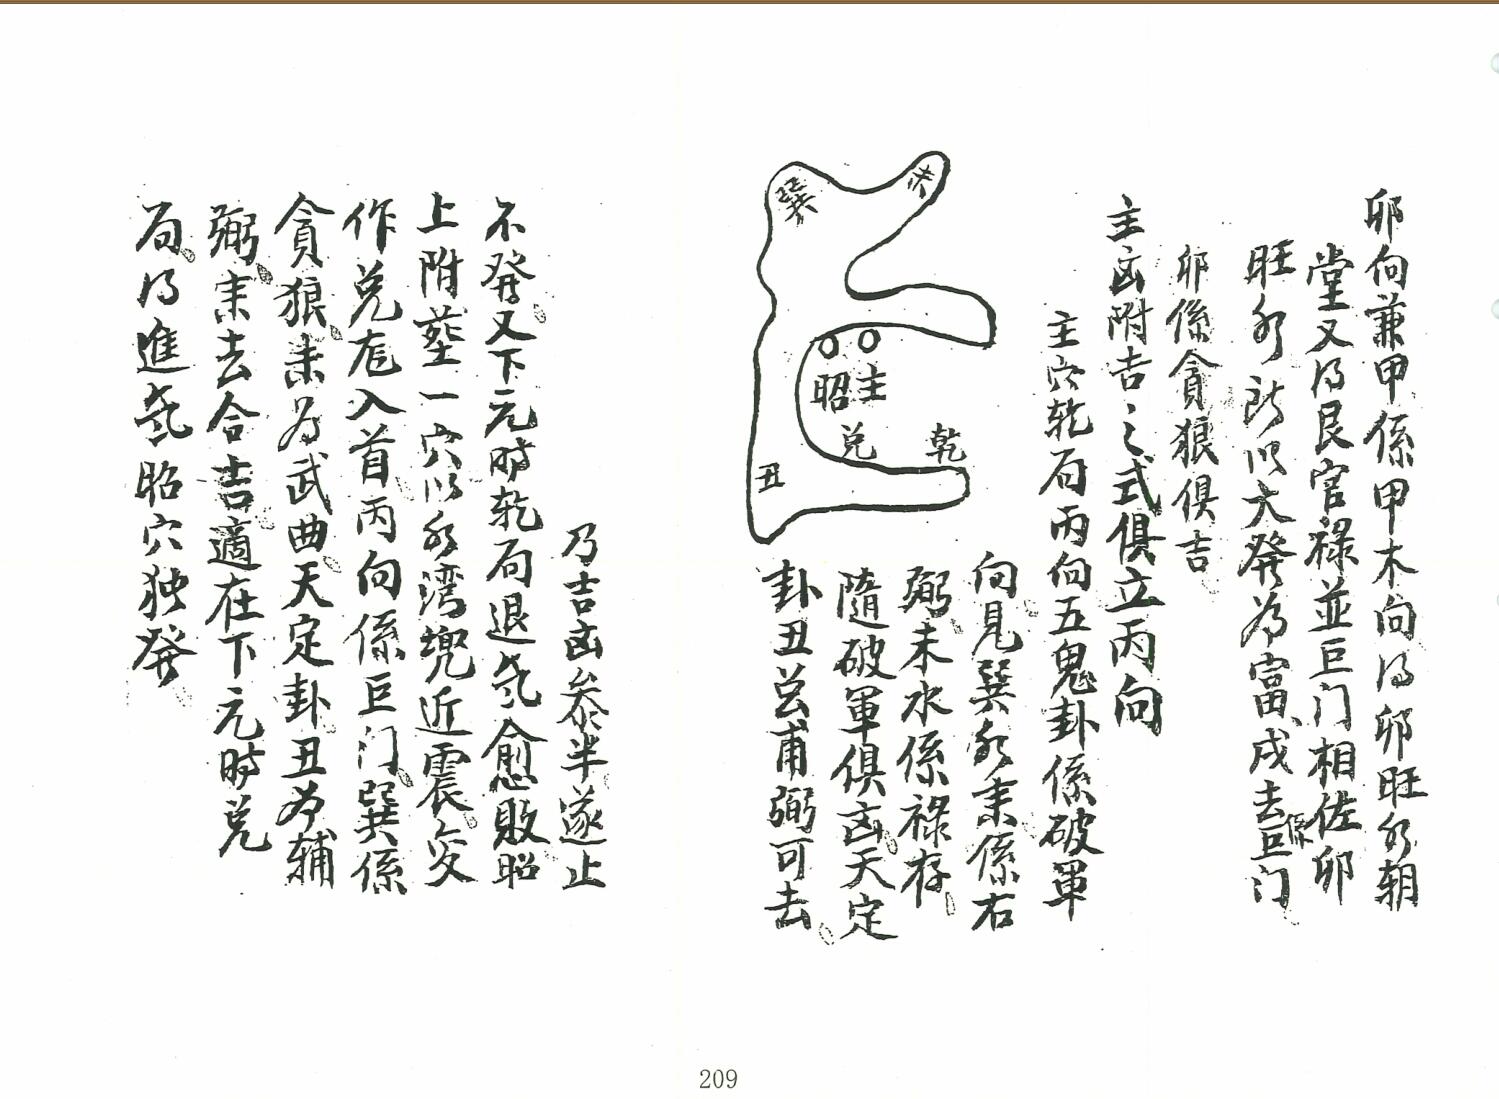 卯向兼甲係甲木向得卯旺水朝
堂又得艮官祿並巨门相佐卯
旺水所以大發為富、戌去係巨门
卯係貪狼俱吉
主凶附吉之式俱立丙向
主穴乾局丙向五鬼卦係破軍
向見巽水来係右
弼未水係祿存
隨破軍俱凶天定
卦丑兰甫弼可去
巽
未
昭
主
兑
乾
丑
乃吉凶參半遂止
不發又下元時乾局退氣愈敗昭
上附塟一穴以水湾兜近震交
作兑龙入首丙向係巨门巽係
貪狼来為武曲天定卦丑为辅
弼来去合吉適在下元時兑
局得進氣昭穴独發
209